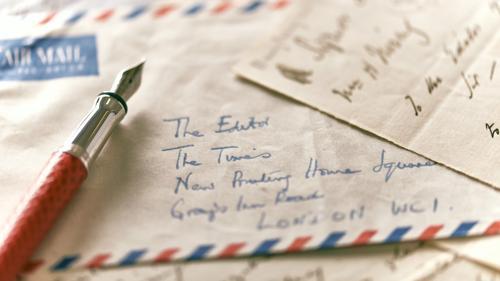 AIR MAIL
The Editor
The Times
New Printing House Square
Gray's Inn Road
LONDON WC1.
To the Editor
Sir -